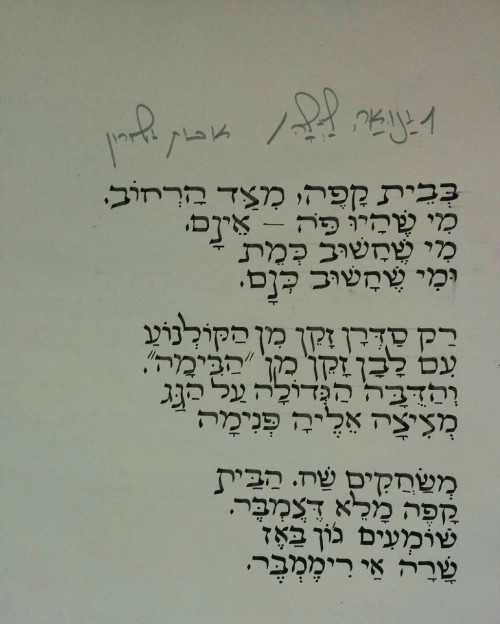 1 יַנוּאַר, לַיְלָה / אבות ישורון
בְּבֵית קָפֶה, מִצַּד הָרְחוֹב.
מִי שֶׁהָיוּ פֹּה – אֵינָם.
מִי שֶׁחָשׁוּב כְּמֵת
וּמִי שֶׁחָשׁוּב כְּנָם.
רַק סַדְרָן זָקֵן מִן הַקּוֹלְנוֹעַ
עִם לַבָן זָקֵן מִן "הַבִּימָה".
וְהַדֻּבָּה הַגְּדוֹלָה עַל הַגַּג
מְצִיצָה אֵלֶיהָ פְּנִימָה
מְשַׂחֲקִים שַׁח. הַבַּיִת
קָפֶה מָלֵא דֶּצֶמְבֶּר.
שׁוֹמְעִים גּוֹן בַּאֶז
שָׁרָה אַי רִימֶמְבֶּר.